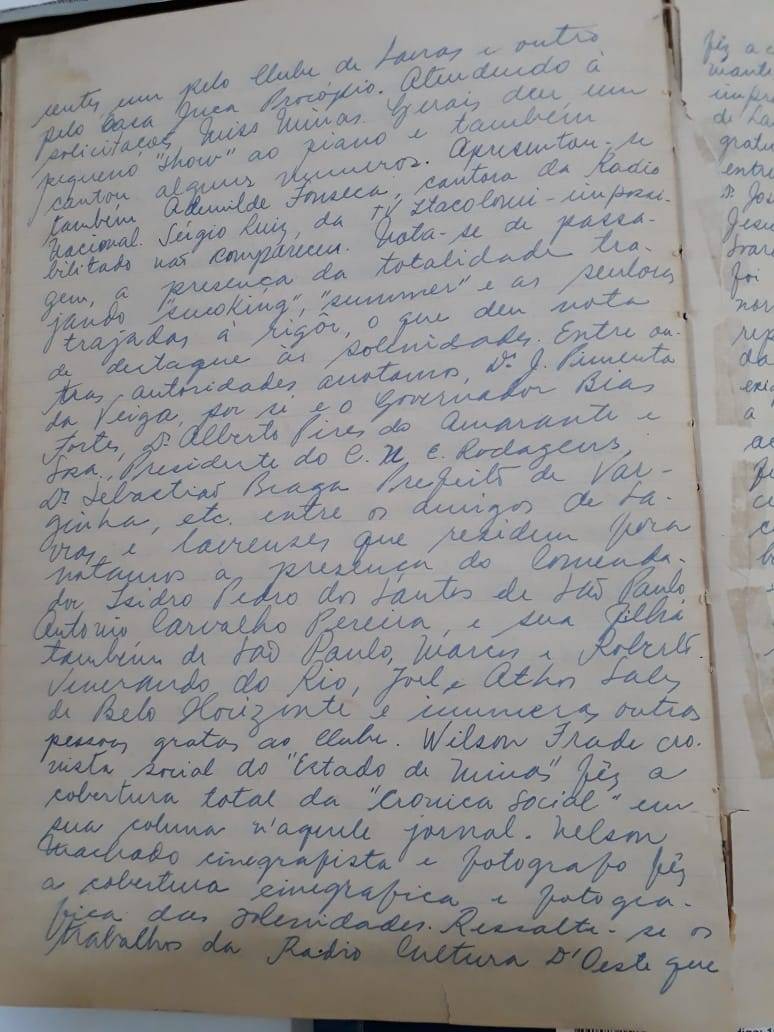 sentes um pelo Clube de Lavras e outro
pelo Casa Juca Procópio. Atendendo à
solicitações, Miss Minas Gerais deu um
pequeno "show" ao piano e também
cantou alguns números. Apresentou-se
também Ademilde Fonseca, cantora da Radio
Nacional. Sérgio Luiz, da TV Itacolomi - impossi-
bilitado não compareceu. Nota-se de passa-
gem, a presença da totalidade tra-
jando "smoking", "summer" e as senhoras
trajadas á rigôr, o que deu nota
de destaque às solenidades. Entre ou-
tras autoridades anotamos, Dr. J. Pimenta
da Veiga, por si e o Governador Bias
Fortes, Dr. Alberto Pires do Amarante e
Sra., Presidente do C. N. E. Rodagens,
Dr. Sebastião Braga Prefeito de Var-
ginha, etc. entre os amigos de La-
vras, e lavrenses que residem fora
notamos a presença do Comenda-
dor Isidro Pedro dos Santos de São Paulo
Antonio Carvalho Pereira, e sua filha
também de São Paulo, Marcos e Roberto
Venerando do Rio, Joel e Athos Sales
de Belo Horizonte e inumeras outras
pessoas gratas ao Clube. Wilson Frade cro-
nista social do "Estado de Minas" fêz a
cobertura total da "Cronica Social" em
sua coluna n'aquele jornal. Nelson
Machado cinegrafista e fotografo fêz
a cobertura cinegrafica e fotogra-
fica das solenidades. Ressalte-se os
trabalhos da Radio Cultura D'Oeste que
fêz a c
mante
impre
de La
gratu
entre
Dr. Jos
Jesu
foi
nor
rep
da
a